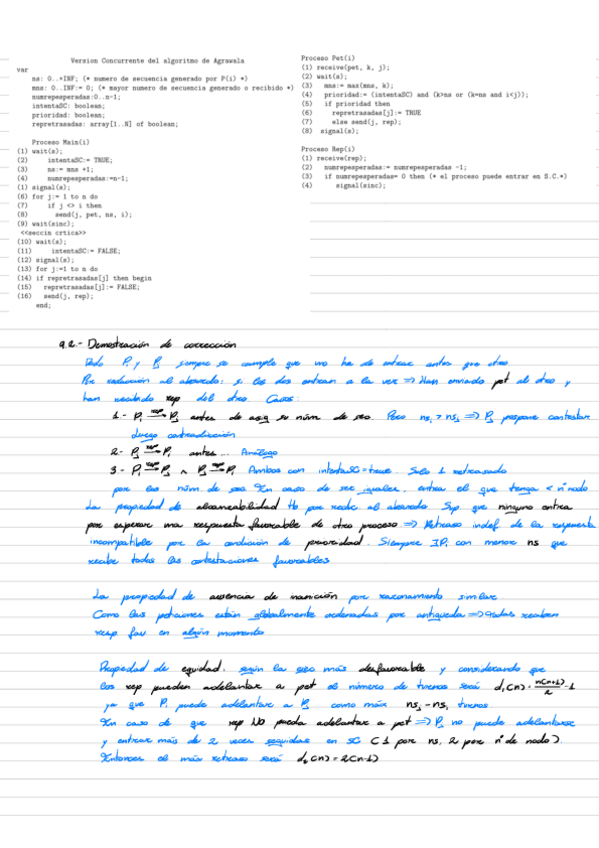 Version Concurrente del algoritmo de Agrawala
var
ns: 0..+INF; (* numero de secuencia generado por P(i) *)
mns: 0..INF:= 0; (* mayor numero de secuencia generado o recibido *)
numrepesperadas:0..n-1;
intentaSC: boolean;
prioridad: boolean;
repretrasadas: array[1..N] of boolean;
Proceso Main(i)
(1) wait(s);
(2) intentaSC:= TRUE;
(3) ns:= mns +1;
(4) numrepesperadas:=n-1;
(1) signal(s);
(6) for j:= 1 to n do
(7) if j <> i then
(8) send(j, pet, ns, i);
(9) wait(sinc);
<<seccin crtica>>
(10) wait(s);
(11) intentaSC:= FALSE;
(12) signal(s);
(13) for j:=1 to n do
(14) if repretrasadas[j] then begin
(15) repretrasadas[j]:= FALSE;
(16) send(j, rep);
end;
Proceso Pet(i)
(1) receive(pet, k, j);
(2) wait(s);
(3) mns:= max(mns, k);
(4) prioridad:= (intentaSC) and (k>ns or (k=ns and i<j));
(5) if prioridad then
(6) repretrasadas[j]:= TRUE
(7) else send(j, rep);
(8) signal(s);
Proceso Rep(i)
(1) receive(rep);
(2) numrepesperadas:= numrepesperadas -1;
(3) if numrepesperadas= 0 then (* el proceso puede entrar en S.C.*)
(4) signal(sinc);
9.2.- Demostración de corrección
Dado Pi y Pj siempre se cumple que uno ha de entrar antes que otro
Por reducción al absurdo: si los dos entran a la vez => Han enviado pet al otro y
han recibido rep del otro. Casos:
1- Pi rep→ Pj antes de asig su núm de sec. Pero nsi > nsj => Pj pospone contestar
luego contradicción
2- Pj rep→ Pi antes... Análogo
3- Pi rep→ Pj ∧ Pj rep→ Pi Ambos con intentaSC=true. Solo 1 retrasado
por los núm de sec. En caso de ser iguales, entra el que tenga < nº nodo
La propiedad de alcanzabilidad tb por reduc al absurdo. Sup. que ninguno entrea
por esperar una respuesta favorable de otro proceso => Retraso indef. de la respuesta
incompatible por la condición de prioridad. Siempre ∃Pi con menor ns que
recibe todas las contestaciones favorables
La propiedad de ausencia de inanición por razonamiento similar
Como las peticiones están globalmente ordenadas por antigüedad => todas reciben
resp fav en algún momento
Propiedad de equidad. según la sec más desfavorable y considerando que
los rep pueden adelantar a pet el número de turnos será d1(n)= n(n+1)/2 -1
ya que Pi puede adelantar a Pj como máx nsj - nsi turnos.
En caso de que rep NO pueda adelantar a pet => Pi no puede adelantarse
y entrar más de 2 veces seguidas en SC (1 por ns, 2 por nº de nodo).
Entonces el máx retraso será d2(n) = 2(n-1)